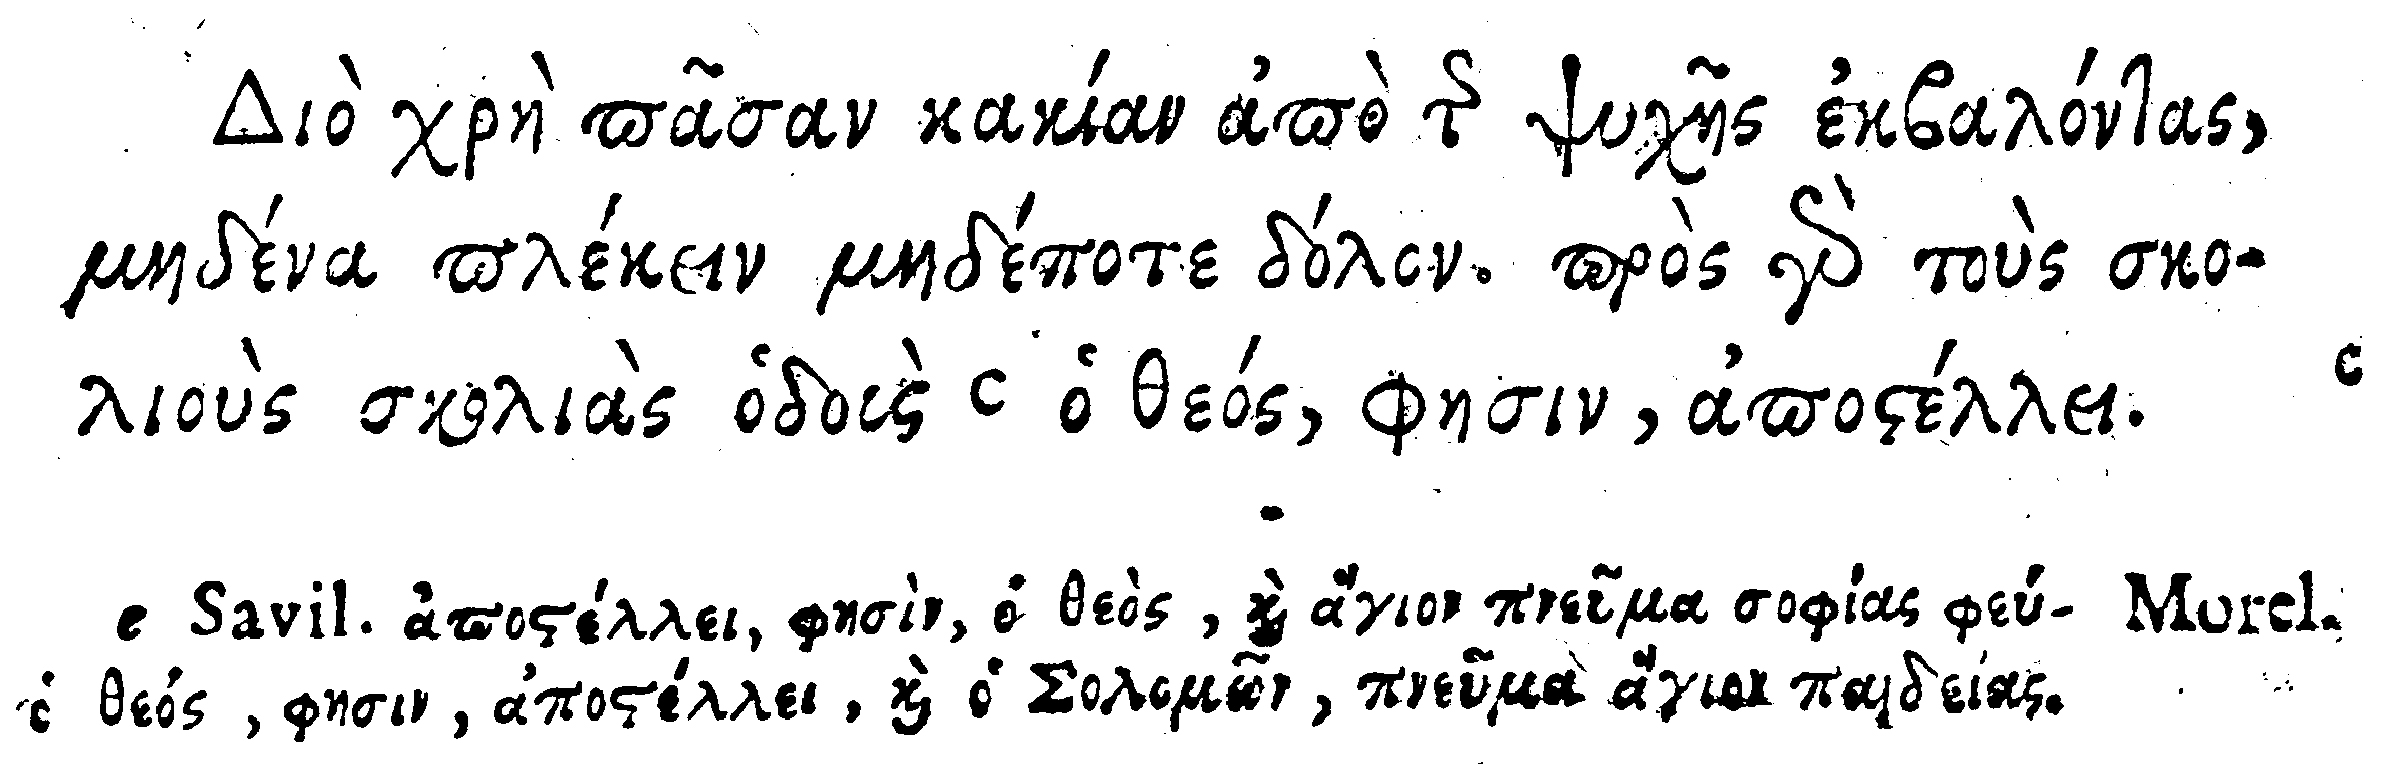 Διὸ χρὴ πᾶσαν κακίαν ἀπὸ τῆς ψυχῆς ἐκβαλόντας,
μηδένα πλέκειν μηδέποτε δόλον. πρὸς γὰρ τοὺς σκο-
λιοὺς σκολιὰς ὁδοὺς c ὁ θεός, φησιν, ἀποστέλλει. c
e Savil. ἀποστέλλει, φησὶν, ὁ θεὸς, καὶ ἅγιον πνεῦμα σοφίας φεύ- Morel.
ὁ θεός, φησιν, ἀποστέλλει, καὶ ὁ Σολομῶν, πνεῦμα ἅγιον παιδείας.